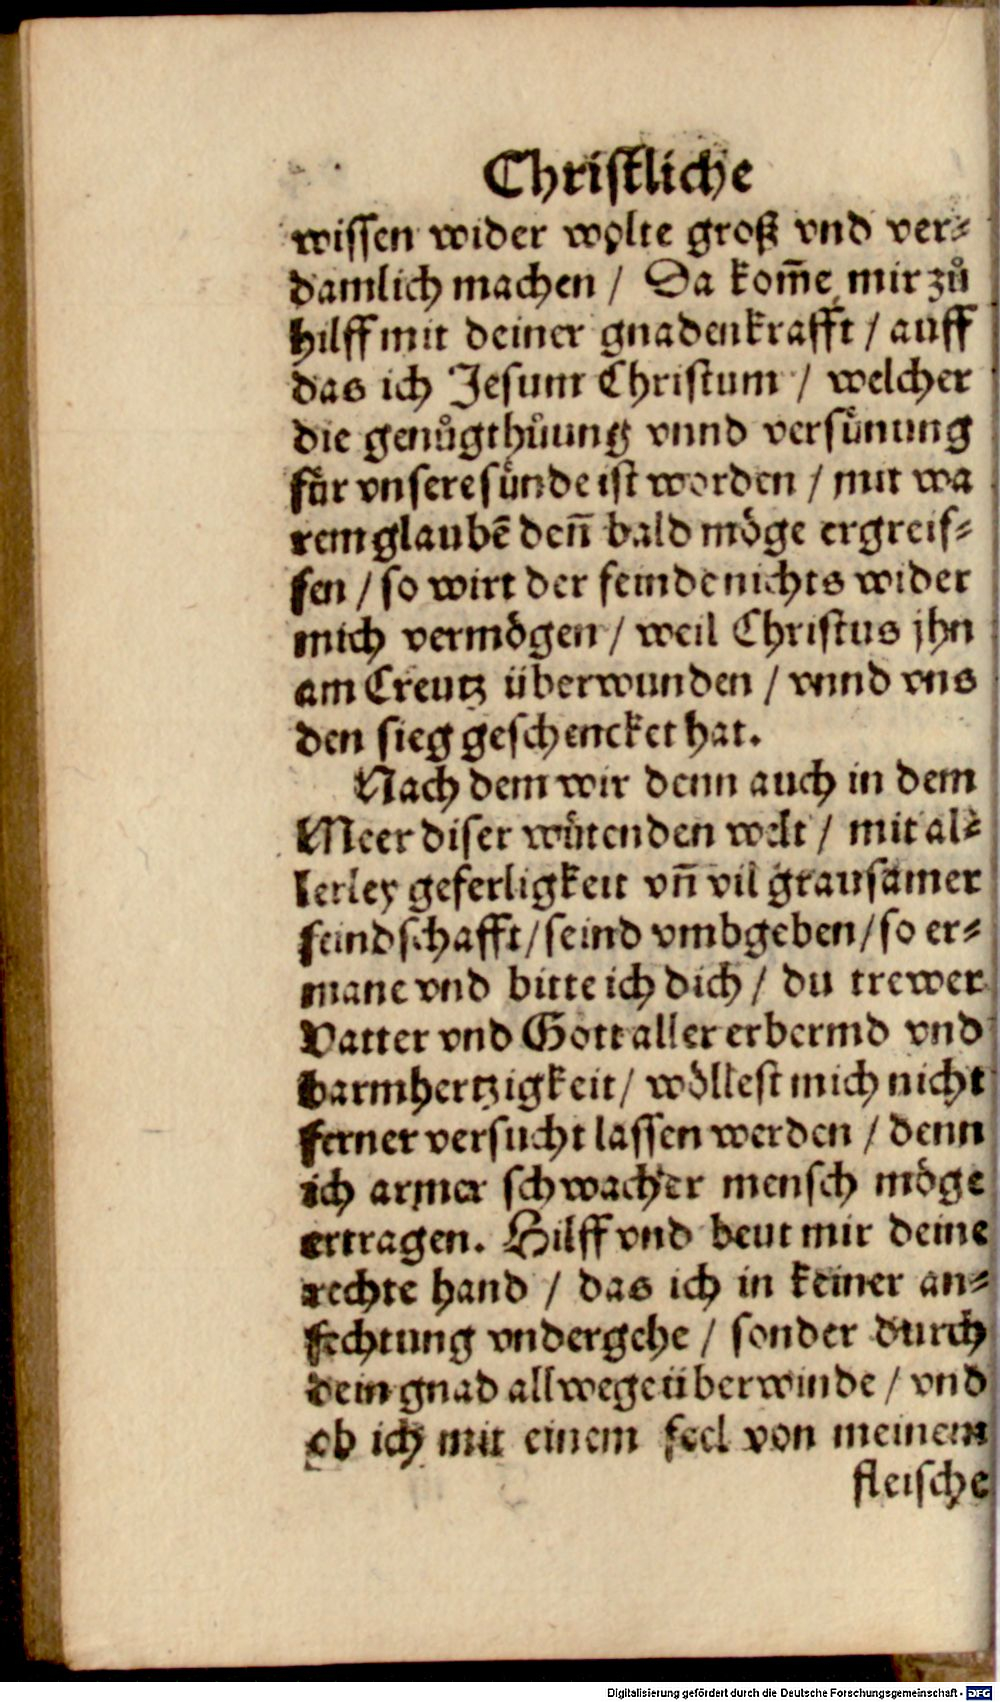 Christliche
wissen wider wolte groß vnd ver-
damlich machen / Da kom̃e mir zů
hilff mit deiner gnadenkrafft / auff
das ich Jesum Christum / welcher
die genůgthůung vnnd versünung
für vnsere sünde ist worden / mit wa
rem glaubẽ deñ bald möge ergreif-
fen / so wirt der feinde nichts wider
mich vermögen / weil Christus jhn
am Creutz überwunden / vnnd vns
den sieg geschencket hat.
Nach dem wir denn auch in dem
Meer diser wütenden welt / mit al-
lerley geferligkeit vñ vil grausamer
feindschafft / seind vmbgeben / so er-
mane vnd bitte ich dich / du trewer
Vatter vnd Gott aller erbermd vnd
barmhertzigkeit / wöllest mich nicht
ferner versucht lassen werden / denn
ich armer schwacher mensch möge
ertragen. Hilff vnd beut mir deine
rechte hand / das ich in keiner an-
fechtung vndergehe / sonder durch
dein gnad allwege überwinde / vnd
ob ich mit einem feel von meinem
fleische
Digitalisierung gefördert durch die Deutsche Forschungsgemeinschaft - DFG